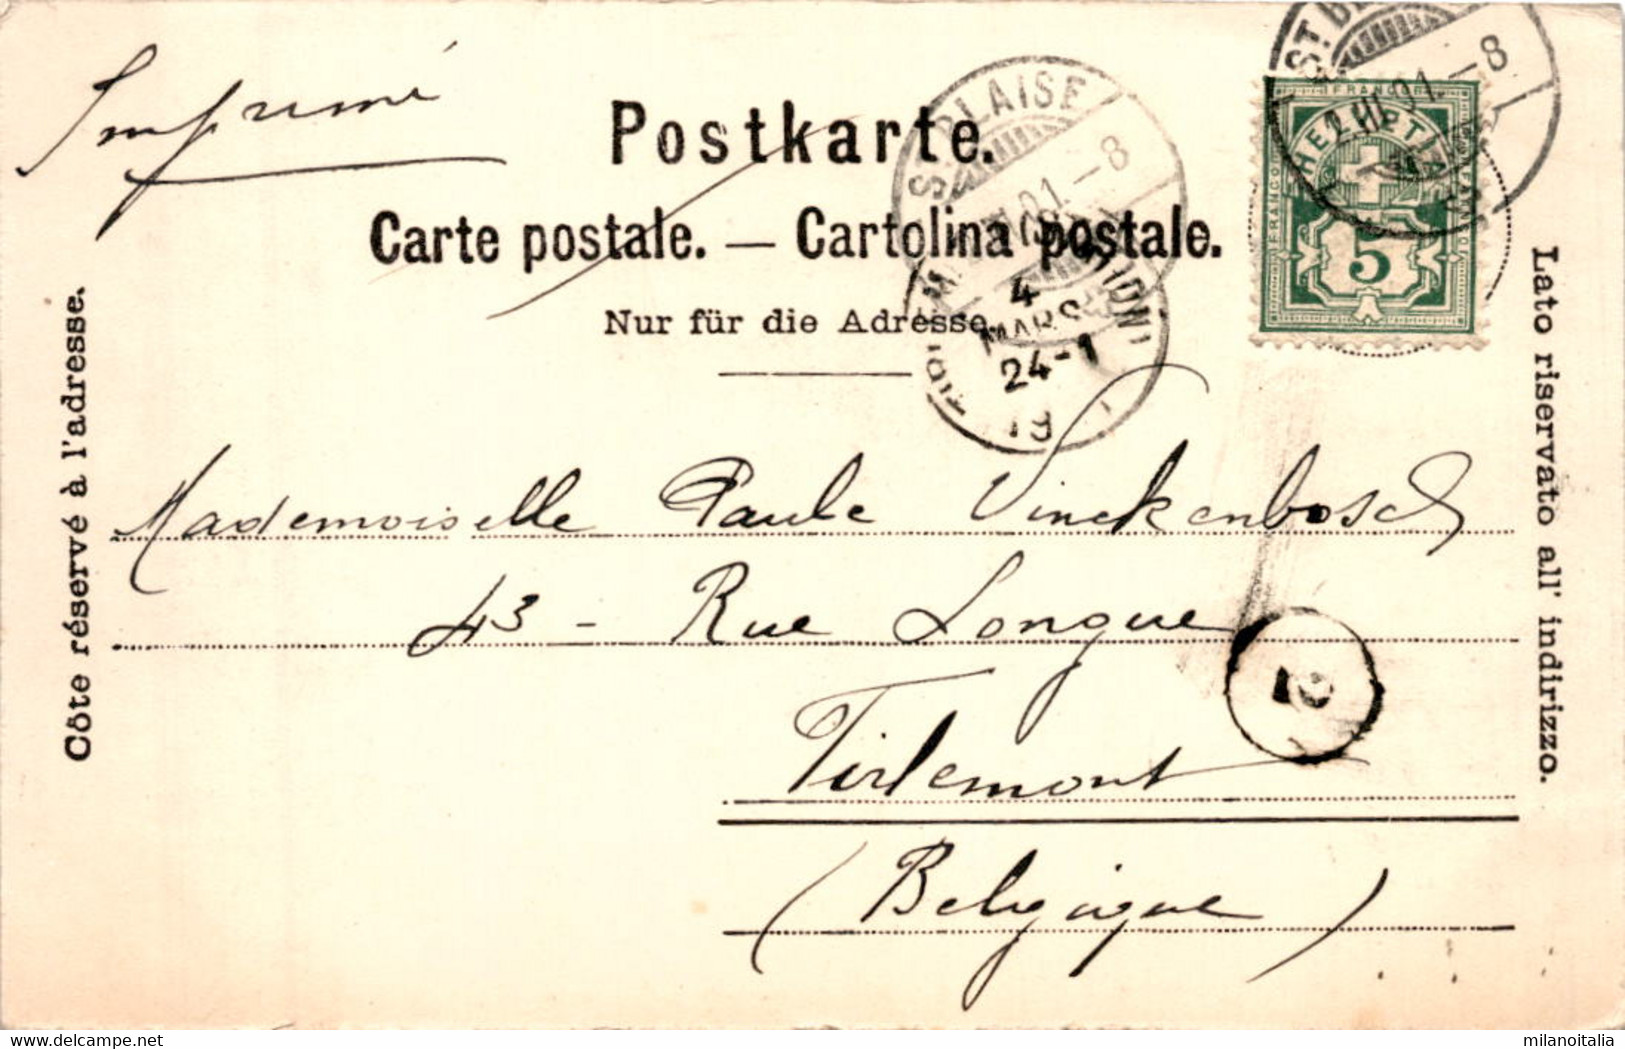 Imprimé
Postkarte.
Carte postale. — Cartolina postale.
Nur für die Adresse.
Côte réservé à l'adresse.
Lato riservato all' indirizzo.
ST. BLAISE
01.-8
4
MARS
24-1
19
ST. B
2.III.01.-8
FRANCO
HELVETIA
FRANCO
5
Mademoiselle Paule Vinckenbosch
43 - Rue Longue
2
Tirlemont
(Belgique)
milanoitalia